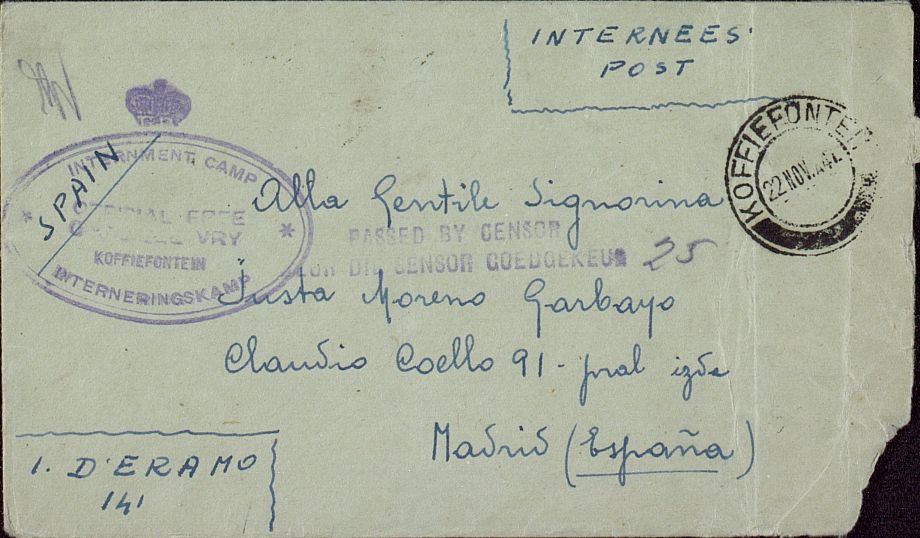 INTERNEES'
POST
KOFFIEFONTEIN
22 NOV
SPAIN
INTERNMENT CAMP
OFFICIAL FREE
OFFISIEEL VRY
KOFFIEFONTEIN
INTERNERINGSKAMP
Alla Gentile Signorina
PASSED BY CENSOR
DEUR DIE SENSOR GOEDGEKEUR 25
Justa Moreno Garbayo
Claudio Coello 91 - pral izda
Madrid (España)
I. D'ERAMO
141